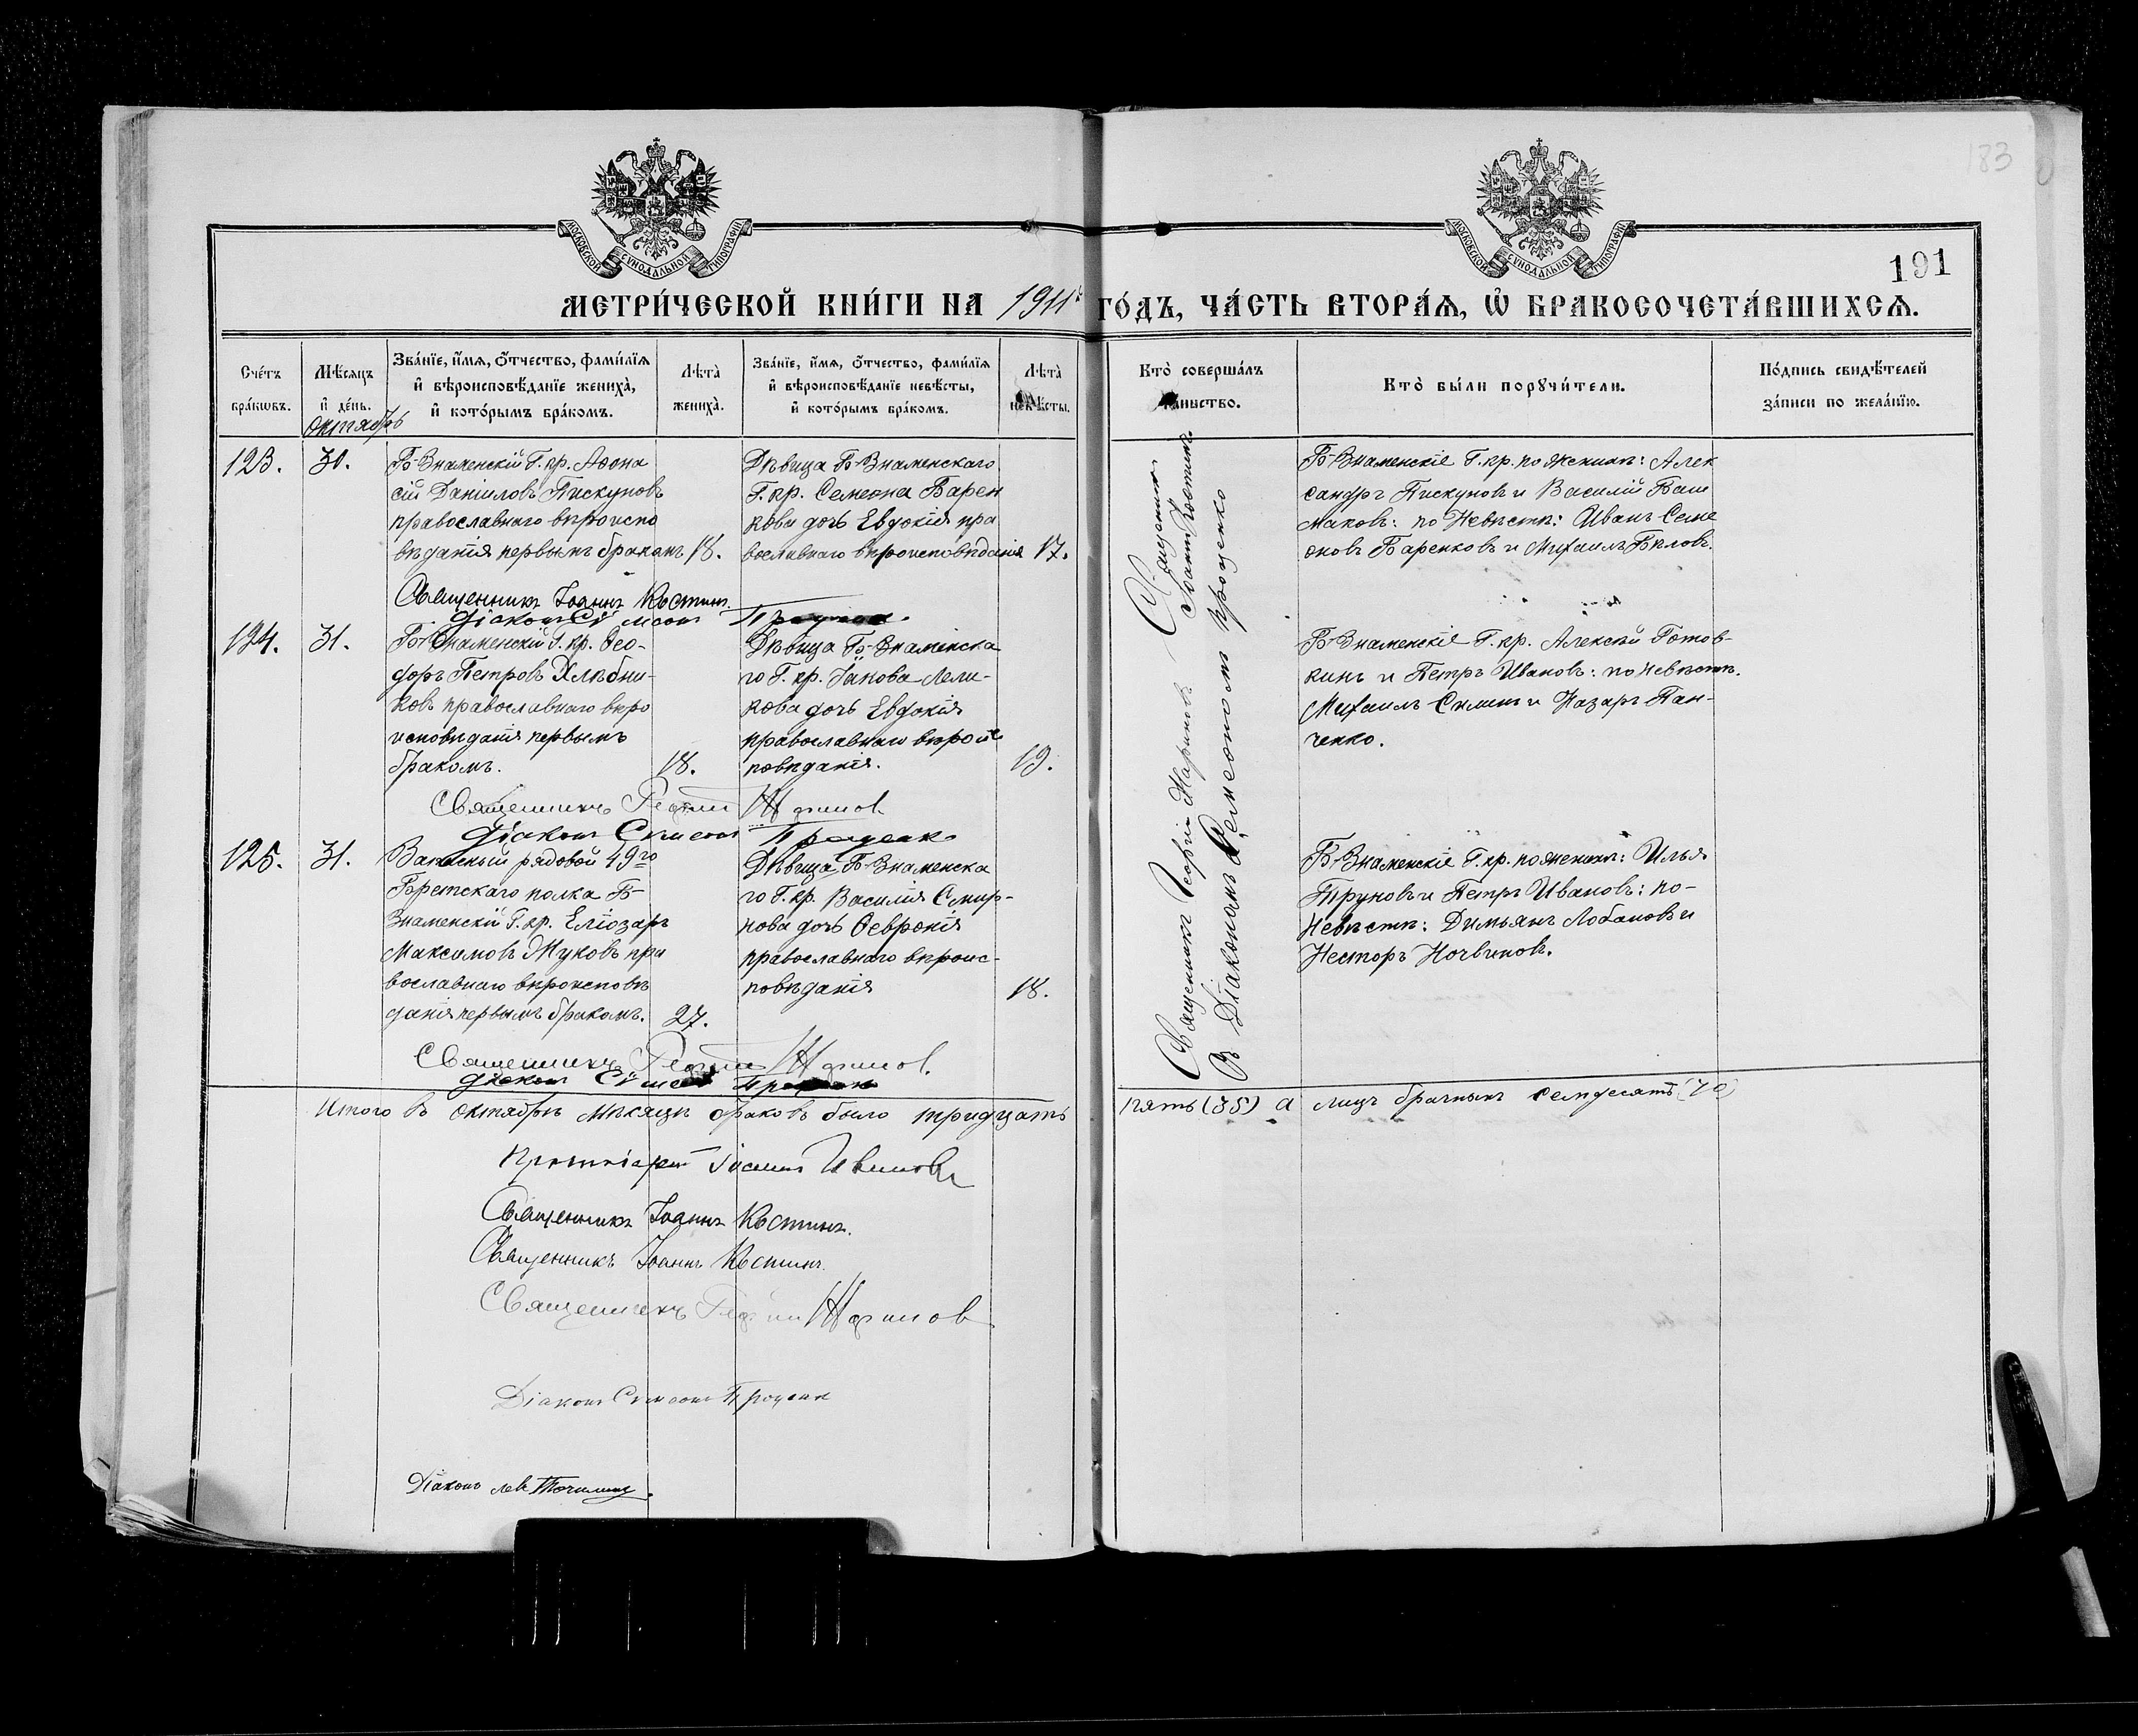 83
МОСКОВСКОЙ СѴНОДАЛЬНОЙ ТИПОГРАФІИ
МОСКОВСКОЙ СѴНОДАЛЬНОЙ ТИПОГРАФІИ
191
МЕТРИ́ЧЕСКОЙ КНИ́ГИ НА 1911 ГО́ДЪ, ЧА́СТЬ ВТОРА́Ѧ, Ѡ БРАКОСОЧЕТА́ВШИХСѦ.
Сче́тъ бра́кѡвъ.
Мѣсѧцъ и҆ де́нь.
Зва́нїе, и҆́мѧ, ѻ҆́тчество, фами́лїѧ и҆ вѣроисповѣ́данїе жениха̀, и҆ кото́рымъ бра́комъ.
Лѣта̀ жениха̀.
Зва́нїе, и҆́мѧ, ѻ҆́тчество, фами́лїѧ и҆ вѣроисповѣ́данїе невѣ́сты, и҆ кото́рымъ бра́комъ.
Лѣта̀ невѣ́сты.
Кто̀ соверша́лъ та́инство.
Кто̀ бы́ли порꙋчи́тели.
По́дпись свидѣ́телей за́писи по жела́нїю.
Октябрь
123.
30.
Б-Знаменскій Г. кр. Аѳона
сій Даніиловъ Пискуновъ
православнаго вѣроиспо
вѣданія первымъ бракомъ
18.
Дѣвица Б-Знаменскаго
Г. кр. Семеона Барен
кова дочь Евдокія пра
вославнаго вѣроисповѣданія
17.
Б-Знаменскіе Г. кр. по женихѣ: Алек
сандръ Пискуновъ и Василій Баш
маковъ: по Невѣстѣ: Иванъ Семе
оновъ Баренковъ и Михаилъ Бѣловъ.
Священникъ Іоаннъ Костинъ.
Діаконъ Сѵмеонъ Проценко
124.
31.
Б-Знаменскій Г. кр. Ѳео-
доръ Петровъ Хлѣбни-
ковъ православнаго вѣро
исповѣданія первымъ
бракомъ.
18.
Дѣвица Б-Знаменска
го Г. кр. Іакова Лели-
кова дочь Евдокія
православнаго вѣроис
повѣданія.
19.
Б-Знаменскіе Г. кр. Алексѣй Готов-
кинъ и Петръ Ивановъ: по невѣстѣ.
Михаилъ Силинъ и Назаръ Пан-
ченко.
Священникъ Георгій Жариновъ
Діаконъ Сѵмеонъ Проценко
125.
31.
Запасный рядовой 49го
Брестскаго полка Б-
Знаменскій Г. кр. Еліозаръ
Максимовъ Жуковъ пра
вославнаго вѣроисповѣ
данія первымъ бракомъ.
27.
Дѣвица Б-Знаменска
го Г. кр. Василія Смир-
нова дочь Ѳевронія
православнаго вѣроис-
повѣданія
18.
Б-Знаменскіе Г. кр. по женихѣ: Илья
Труновъ и Петръ Ивановъ: по-
Невѣстѣ: Димьянъ Лобановъ и
Несторъ Ночвиновъ.
Священникъ Георгій Жариновъ.
Діаконъ Сѵмеонъ Проценко
Священникъ Іоаннъ Костинъ.
Священникъ Георгій Жариновъ
Съ Діакономъ Семеономъ Проценко
Итого въ октябрѣ мѣсяцѣ браковъ было тридцать пять (35) а лицъ брачныхъ семдесятъ (70)
Протоіерей Іоаннъ Ивановъ
Священникъ Іоаннъ Костинъ.
Священникъ Іоаннъ Костинъ.
Священникъ Георгій Жариновъ
Діаконъ Сѵмеонъ Проценко
Діаконъ Левъ Точилинъ.